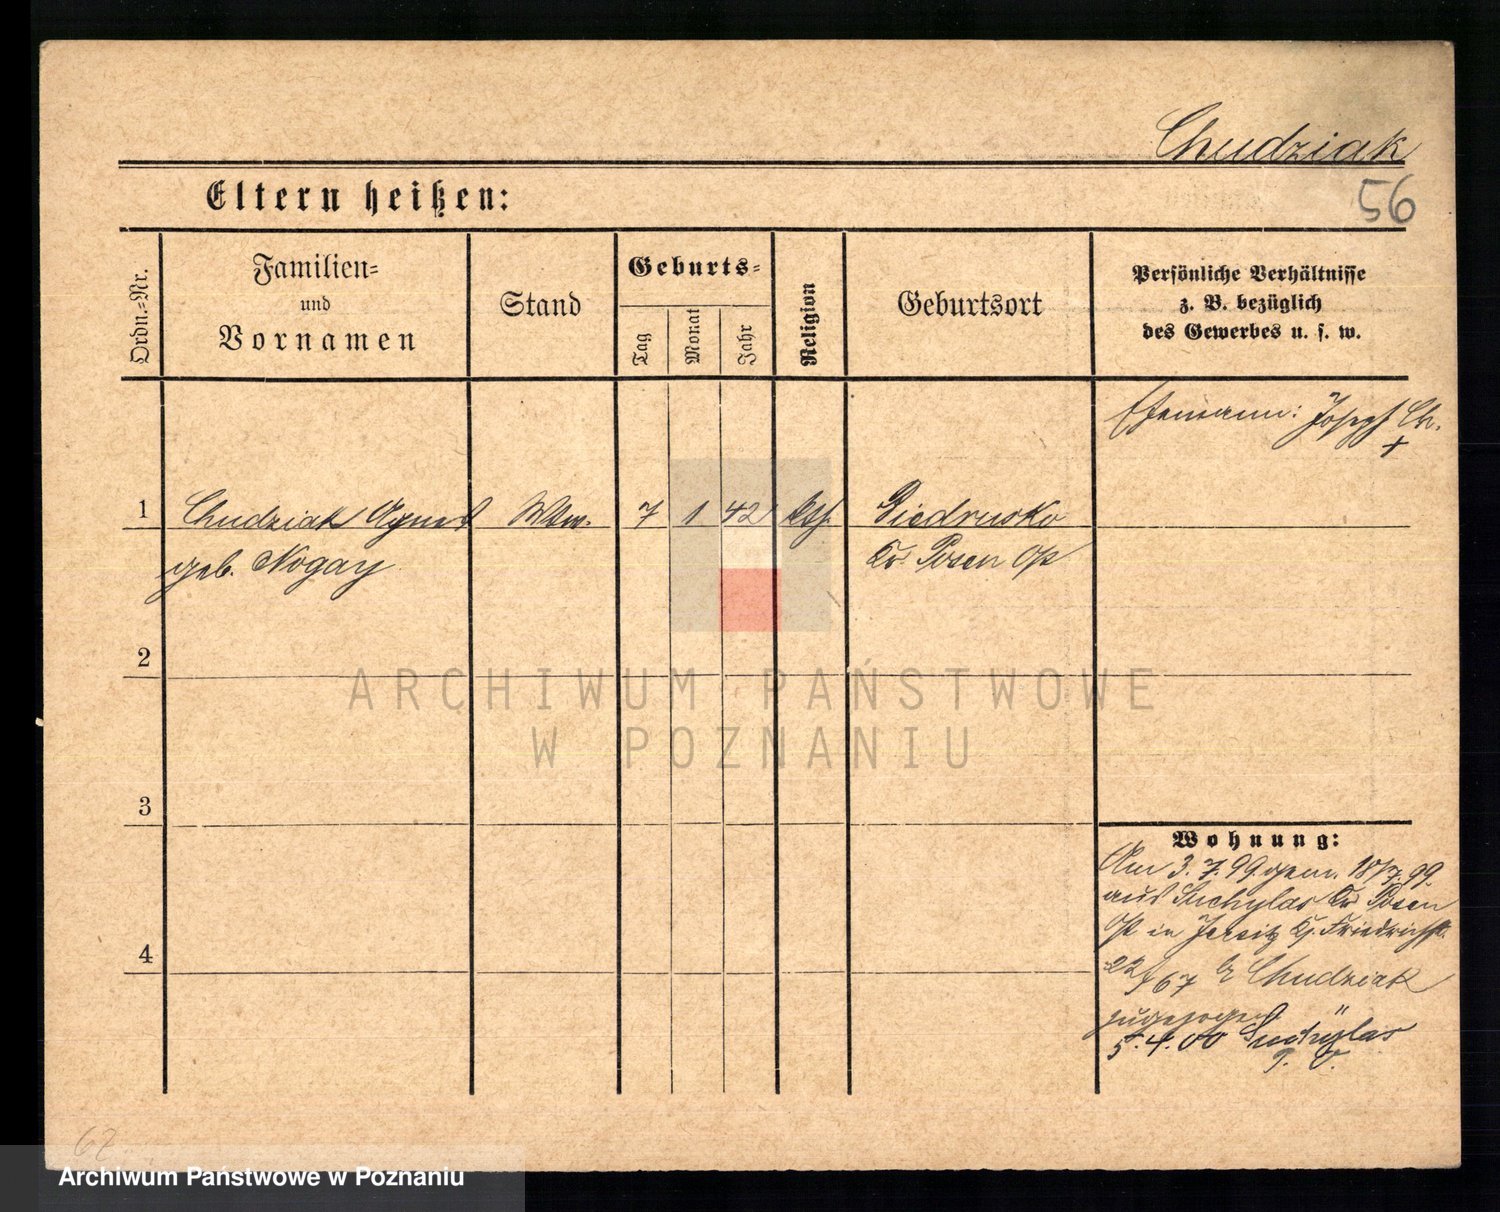 Chudziak
Eltern heißen:
56
Ordn.=Nr.
Familien=
und
Vornamen
Stand
Geburts=
Tag
Monat
Jahr
Religion
Geburtsort
Persönliche Verhältnisse
z. B. bezüglich
des Gewerbes u. s. w.
Ehemann: Joseph Ch.
+
1 Chudziak Agnes Wtw. 7 1 42 kth. Biedrusko
geb. Nogay Kr. Posen Op
2
ARCHIWUM PAŃSTWOWE
W POZNANIU
3
4
Wohnung:
Am 3. 7. 99 gem. 18/7. 99
aus Suchylas Kr Posen
Op in Jersitz Friedrichst.
22/67 b Chudziak
zugezogen
5. 4. 00 Suchylas
P. O.
62
Archiwum Państwowe w Poznaniu